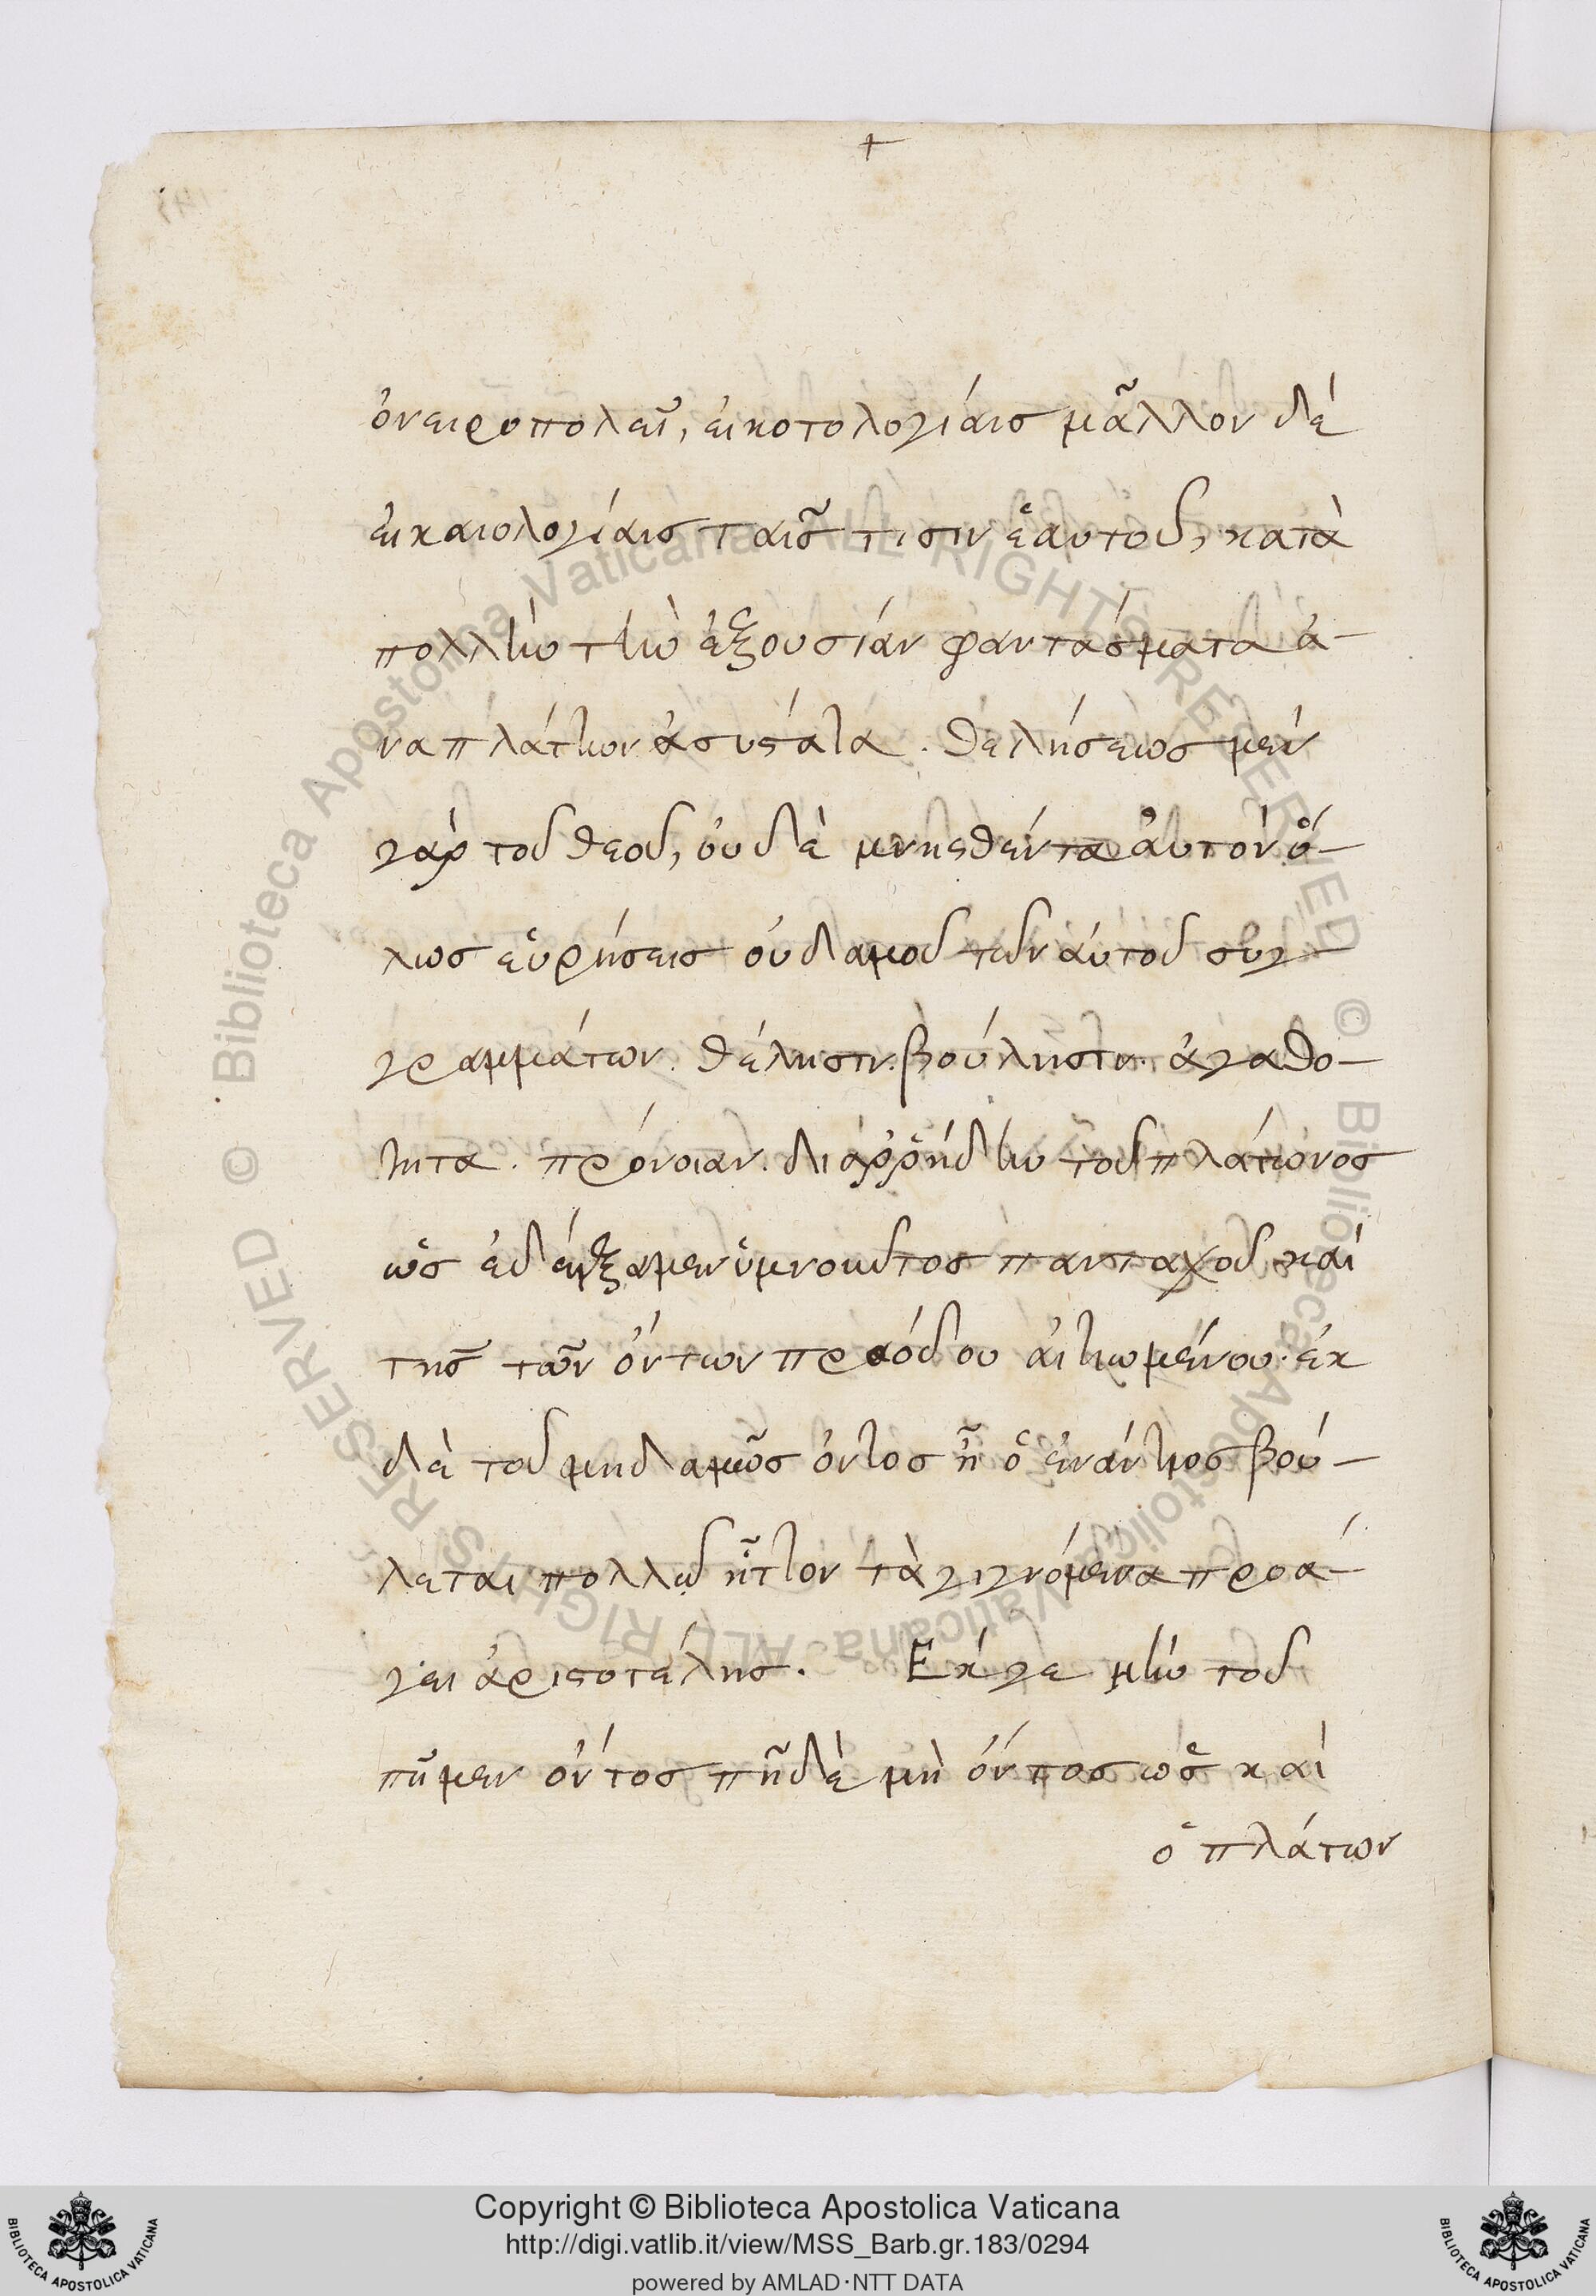 +
ὀνειροπολεῖ, εἰκοτολογίαις μᾶλλον δέ
εἰκαιολογίαις ταῖς τισιν ἑαυτοῦ, κατὰ
πολλὴν τὴν ἐξουσίαν φαντάσματα ἀ-
ναπλάττων ἀσύστατα. θελήσεως μέν
γὰρ τοῦ θεοῦ, οὐδὲ μνησθέντα αὐτὸν ὅ-
λως εὑρήσεις οὐδαμοῦ τῶν αὐτοῦ συγ-
γραμμάτων. θέλησιν. βούλησιν. ἀγαθό-
τητα. πρόνοιαν. διαρρήδην τοῦ πλάτωνος
ὡς ἐδείξαμεν ὑμνοῦντος πανταχοῦ καί
τῆς τῶν ὄντων προόδου αἰτιωμένου. ἐκ
δὲ τοῦ μηδαμῶς ὄντος ᾗ ὁ ἐνάντιος βού-
λεται πολλῷ ἧττον τὰ γιγνόμενα προά-
γει ἀριστοτέλης. Εκ γε μὴν τοῦ
πῆ μεν ὄντος πῆ δὲ μὴ ὄντος ὡς καί
ὁ πλάτων
© Biblioteca Apostolica Vaticana - ALL RIGHTS RESERVED © Biblioteca Apostolica Vaticana - ALL RIGHTS RESERVED
BIBLIOTECA APOSTOLICA VATICANA
Copyright © Biblioteca Apostolica Vaticana
http://digi.vatlib.it/view/MSS_Barb.gr.183/0294
powered by AMLAD·NTT DATA
BIBLIOTECA APOSTOLICA VATICANA